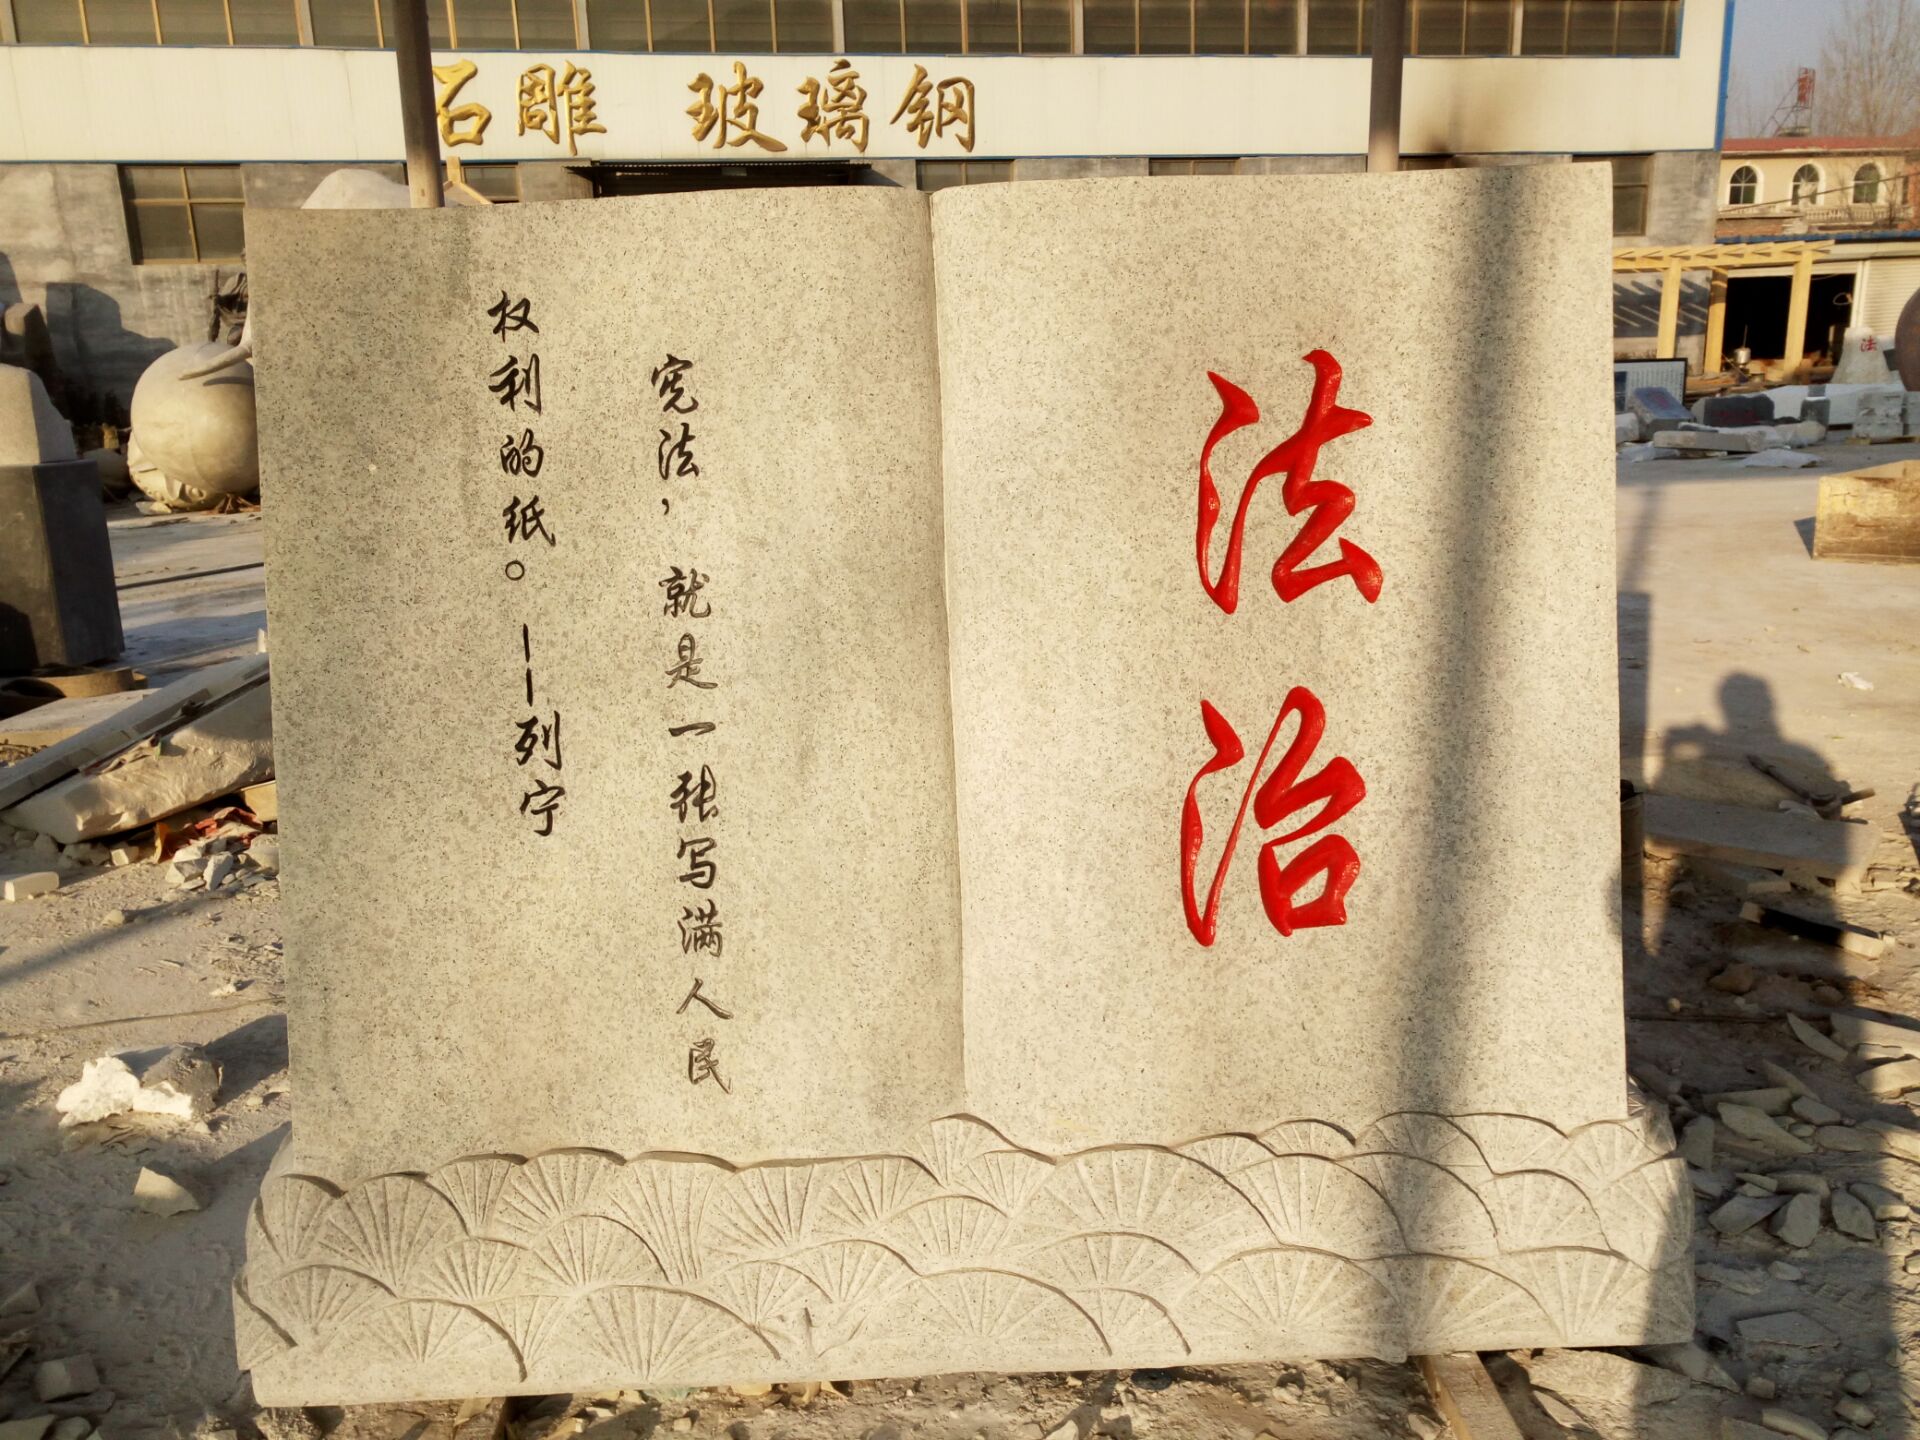 石雕 玻璃钢
法治
宪法，就是一张写满人民
权利的纸。——列宁
法